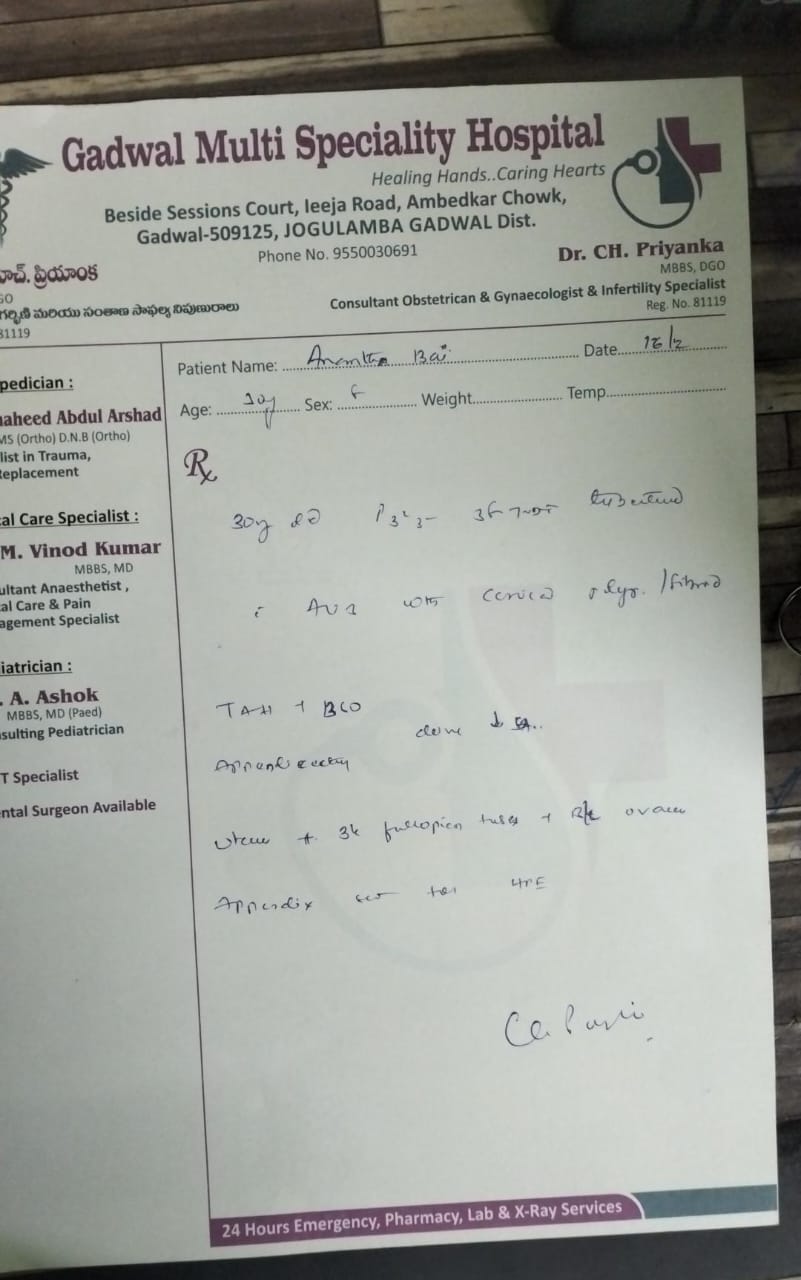 Gadwal Multi Speciality Hospital
Healing Hands..Caring Hearts
Beside Sessions Court, Ieeja Road, Ambedkar Chowk,
Gadwal-509125, JOGULAMBA GADWAL Dist.
Phone No. 9550030691
ాచ్. ప్రియాంక
GO
గర్భిణి మరియు సంతాన సాఫల్య నిపుణురాలు
81119
Dr. CH. Priyanka
MBBS, DGO
Consultant Obstetrican & Gynaecologist & Infertility Specialist
Reg. No. 81119
pedician :
naheed Abdul Arshad
MS (Ortho) D.N.B (Ortho)
list in Trauma,
Replacement
al Care Specialist :
M. Vinod Kumar
MBBS, MD
ultant Anaesthetist ,
al Care & Pain
agement Specialist
iatrician :
. A. Ashok
MBBS, MD (Paed)
nsulting Pediatrician
T Specialist
ental Surgeon Available
Patient Name: Bai Date
Age: 30y Sex: F Weight Temp
Rx
30y P3L3
with cervical /fibroid
TAH + BSO
done
Appendicectomy
uterus + fallopian tubes + ovaries
Appendix sent for HPE
24 Hours Emergency, Pharmacy, Lab & X-Ray Services